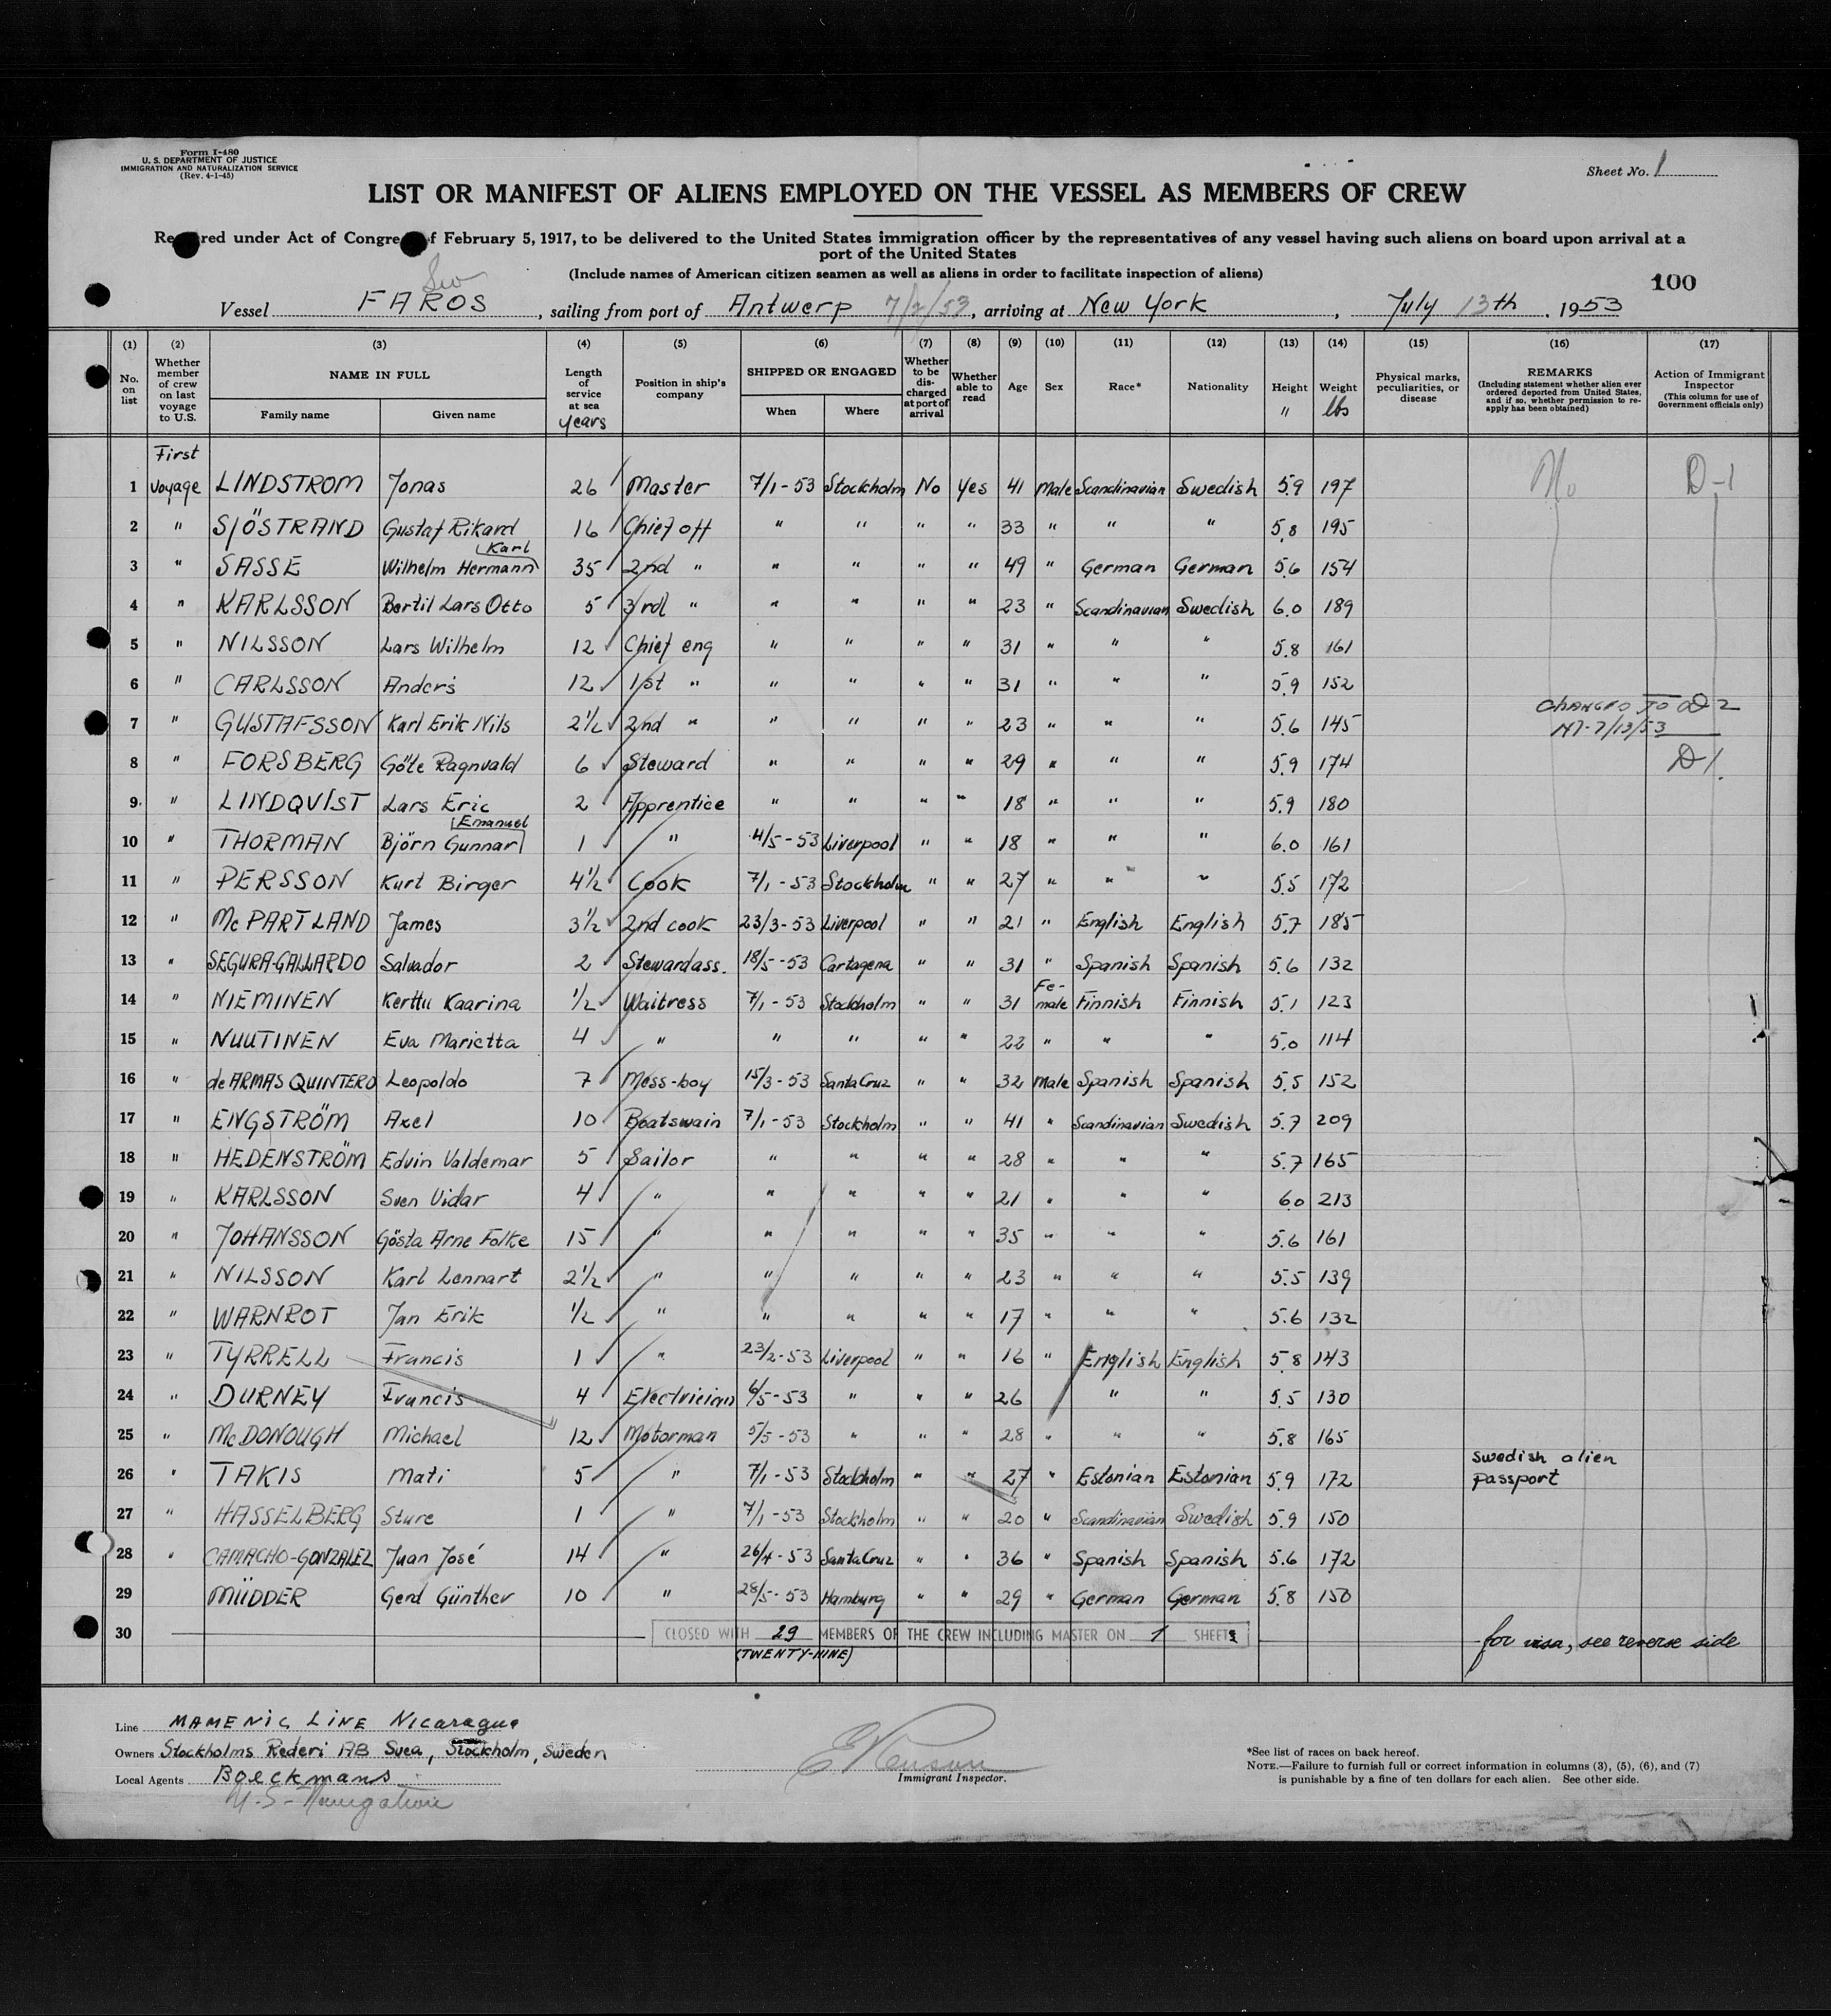 Form I-480
U. S. DEPARTMENT OF JUSTICE
IMMIGRATION AND NATURALIZATION SERVICE
(Rev. 4-1-45)
Sheet No. 1
LIST OR MANIFEST OF ALIENS EMPLOYED ON THE VESSEL AS MEMBERS OF CREW
Re red under Act of Congre f February 5, 1917, to be delivered to the United States immigration officer by the representatives of any vessel having such aliens on board upon arrival at a
port of the United States
(Include names of American citizen seamen as well as aliens in order to facilitate inspection of aliens)
100
Sw
Vessel FAROS, sailing from port of Antwerp 7/2/53, arriving at New York, July 13th, 1953
(1) (2) (3) (4) (5) (6) (7) (8) (9) (10) (11) (12) (13) (14) (15) (16) (17)
No. on list
Whether member of crew on last voyage to U.S.
NAME IN FULL
Family name Given name
Length of service at sea years
Position in ship's company
SHIPPED OR ENGAGED
When Where
Whether to be discharged at port of arrival
Whether able to read
Age Sex Race* Nationality Height " Weight lbs
Physical marks, peculiarities, or disease
REMARKS
(Including statement whether alien ever ordered deported from United States, and if so, whether permission to reapply has been obtained)
Action of Immigrant Inspector
(This column for use of Government officials only)
First
1 Voyage LINDSTROM Jonas 26 Master 7/1-53 Stockholm No Yes 41 Male Scandinavian Swedish 5.9 197 No D-1
2 " SJÖSTRAND Gustaf Rikard 16 Chief off " " " " 33 " " " 5.8 195
3 " SASSE Karl Wilhelm Hermann 35 2nd " " " " " 49 " German German 5.6 154
4 " KARLSSON Bertil Lars Otto 5 3rd " " " " " 23 " Scandinavian Swedish 6.0 189
5 " NILSSON Lars Wilhelm 12 Chief eng " " " " 31 " " " 5.8 161
6 " CARLSSON Anders 12 1st " " " " " 31 " " " 5.9 152
7 " GUSTAFSSON Karl Erik Nils 2½ 2nd " " " " " 23 " " " 5.6 145 CHANGED TO D2 7/13/53
8 " FORSBERG Göte Ragnvald 6 Steward " " " " 29 " " " 5.9 174 D1
9 " LINDQVIST Lars Eric 2 Apprentice " " " " 18 " " " 5.9 180
10 " THORMAN Björn Gunnar Emanuel 1 " 4/5-53 Liverpool " " 18 " " " 6.0 161
11 " PERSSON Kurt Birger 4½ Cook 7/1-53 Stockholm " " 27 " " " 5.5 172
12 " McPARTLAND James 3½ 2nd cook 23/3-53 Liverpool " " 21 " English English 5.7 185
13 " SEGURA-GALLARDO Salvador 2 Stewardass. 18/5-53 Cartagena " " 31 " Spanish Spanish 5.6 132
14 " NIEMINEN Kerttu Kaarina ½ Waitress 7/1-53 Stockholm " " 31 Fe-male Finnish Finnish 5.1 123
15 " NUUTINEN Eva Marietta 4 " " " " " 22 " " " 5.0 114
16 " de ARMAS QUINTERO Leopoldo 7 Mess-boy 15/3-53 Santa Cruz " " 32 Male Spanish Spanish 5.5 152
17 " ENGSTRÖM Axel 10 Boatswain 7/1-53 Stockholm " " 41 " Scandinavian Swedish 5.7 209
18 " HEDENSTRÖM Edvin Valdemar 5 Sailor " " " " 28 " " " 5.7 165
19 " KARLSSON Sven Vidar 4 " " " " " 21 " " " 6.0 213
20 " JOHANSSON Gösta Arne Folke 15 " " " " " 35 " " " 5.6 161
21 " NILSSON Karl Lennart 2½ " " " " " 23 " " " 5.5 139
22 " WARNROT Jan Erik ½ " " " " " 17 " " " 5.6 132
23 " TYRRELL Francis 1 " 23/2-53 Liverpool " " 16 " English English 5.8 143
24 " DURNEY Francis 4 Electrician 6/5-53 " " " 26 " " 5.5 130
25 " McDONOUGH Michael 12 Motorman 5/5-53 " " " 28 " " " 5.8 165
26 " TAKIS Mati 5 " 7/1-53 Stockholm " " 27 " Estonian Estonian 5.9 172 Swedish alien passport
27 " HASSELBERG Sture 1 " 7/1-53 Stockholm " " 20 " Scandinavian Swedish 5.9 150
28 " CAMACHO-GONZALEZ Juan José 14 " 26/4-53 Santa Cruz " " 36 " Spanish Spanish 5.6 172
29 MÜDDER Gerd Günther 10 " 28/5-53 Hamburg " " 29 " German German 5.8 150
30 CLOSED WITH 29 MEMBERS OF THE CREW INCLUDING MASTER ON 1 SHEET
(TWENTY-NINE)
for visa, see reverse side
Line MAMENIC LINE Nicaragua
Owners Stockholms Rederi AB Svea, Stockholm, Sweden
Local Agents Boeckmans
U.S. Navigation
Immigrant Inspector.
*See list of races on back hereof.
NOTE.—Failure to furnish full or correct information in columns (3), (5), (6), and (7)
is punishable by a fine of ten dollars for each alien. See other side.